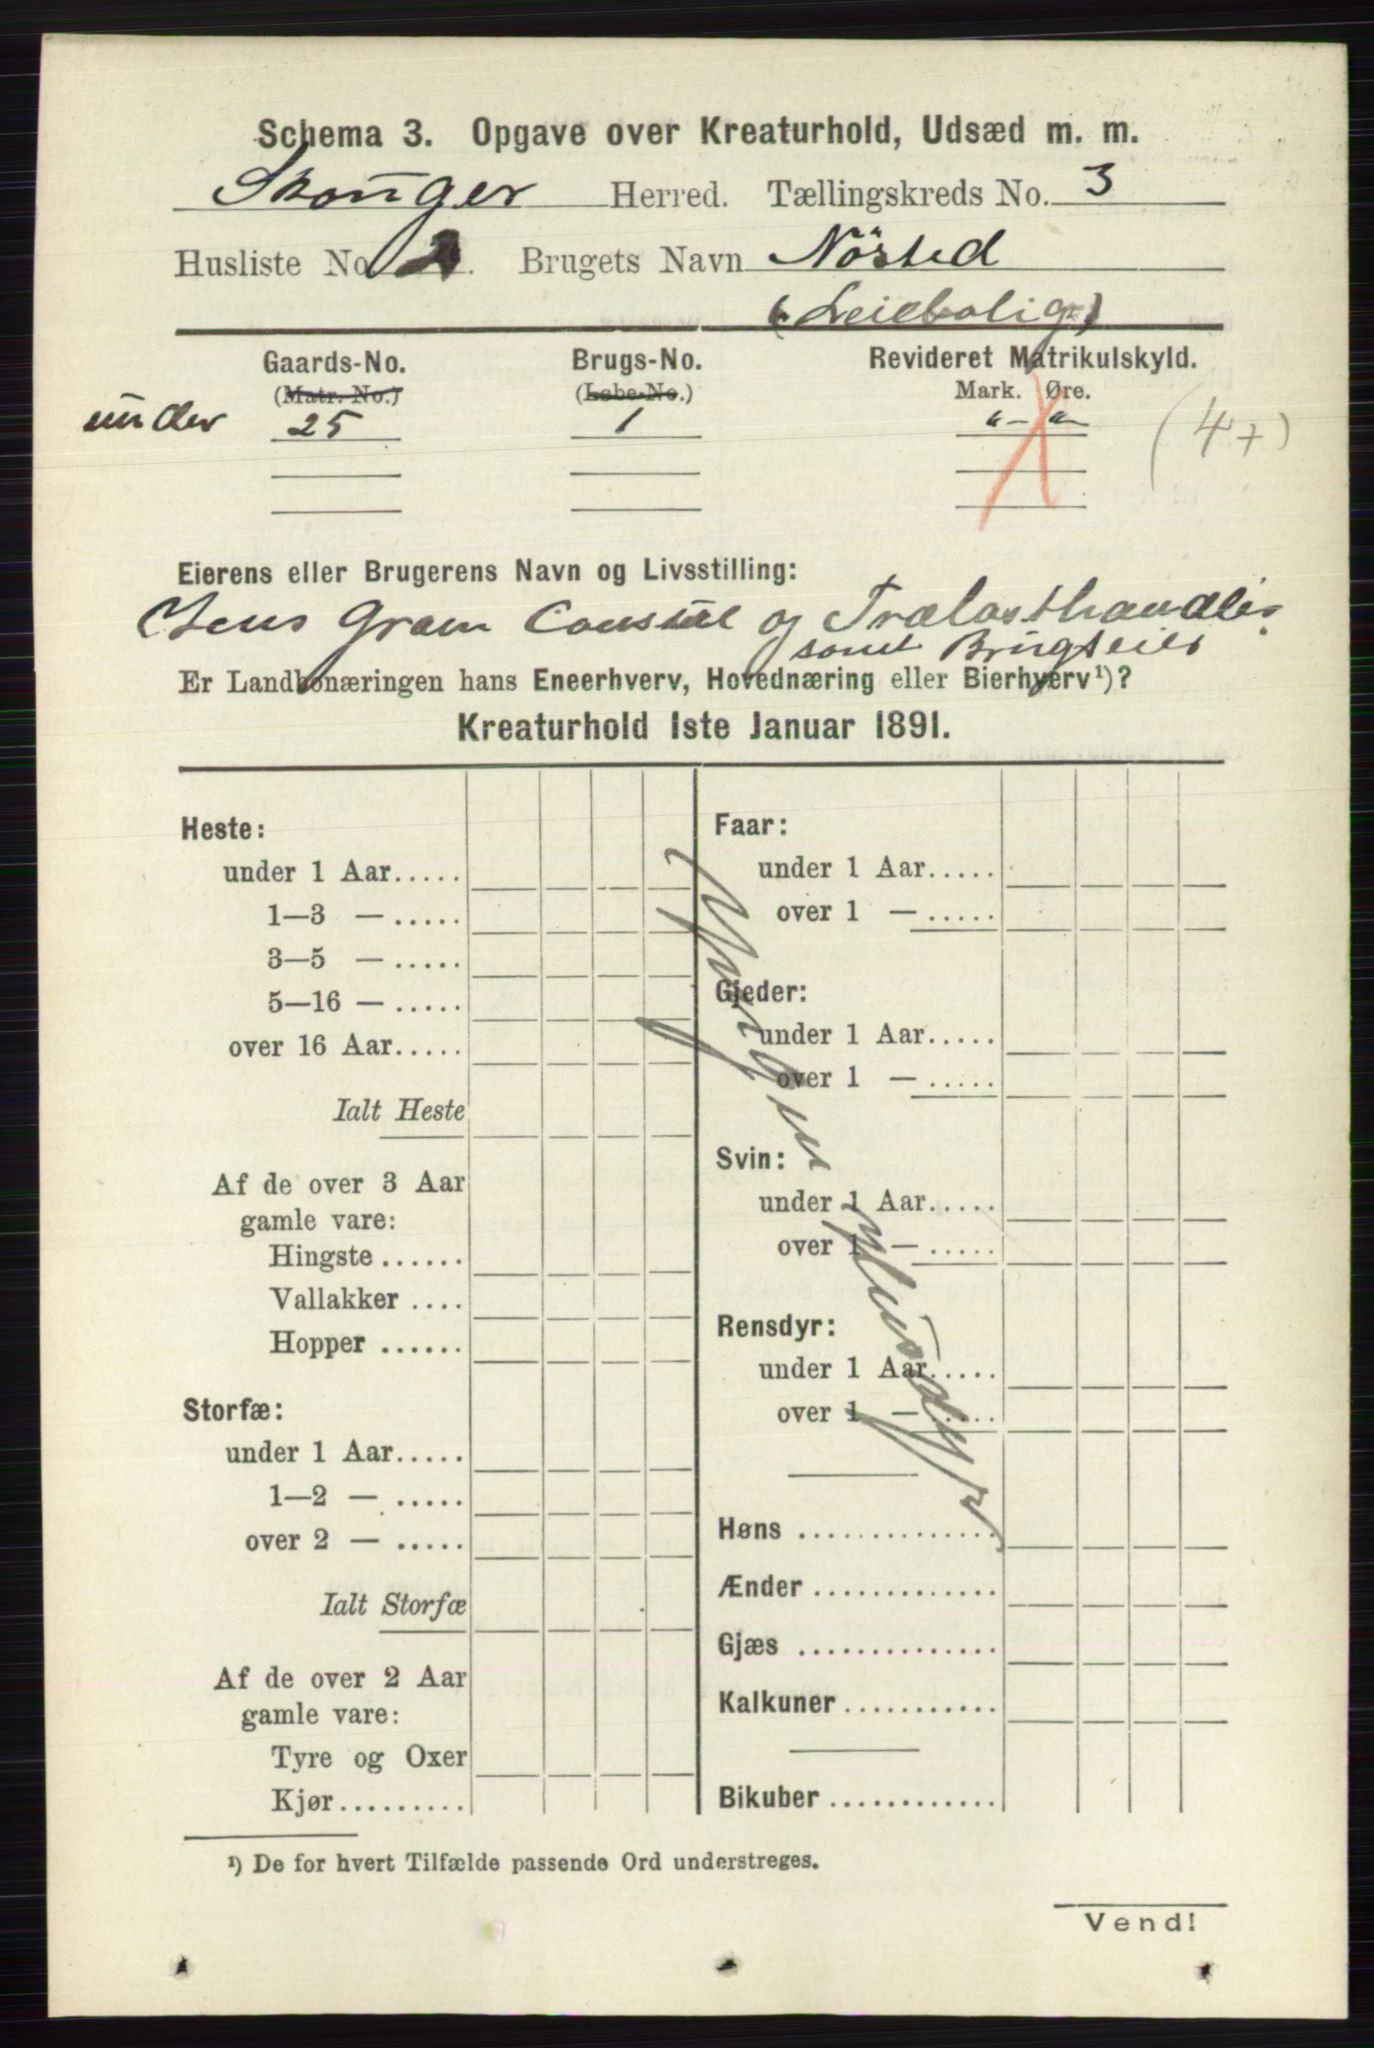 Schema 3. Opgave over Kreaturhold, Udsæd m. m.
Skouger Herred. Tællingskreds No. 3
Husliste No. 2. Brugets Navn Nösted
(Leiebolig)
Gaards-No. Brugs-No. Revideret Matrikulskyld.
(Matr. No.) (Løbe-No.) Mark. Øre.
under 25 1 „ – „ (4+)
Eierens eller Brugerens Navn og Livsstilling:
Jens Gram Consul og Trælasthandler
samt Brugseier
Er Landbonæringen hans Eneerhverv, Hovednæring eller Bierhverv¹)?
Kreaturhold 1ste Januar 1891.
Heste:
under 1 Aar.....
1—3 — .....
3—5 — .....
5—16 — .....
over 16 Aar.....
Ialt Heste
Af de over 3 Aar
gamle vare:
Hingste ......
Vallakker ....
Hopper ......
Storfæ:
under 1 Aar.....
1—2 — .....
over 2 — .....
Ialt Storfæ
Af de over 2 Aar
gamle vare:
Tyre og Oxer
Kjør.........
Faar:
under 1 Aar.....
over 1 — .....
Gjeder:
under 1 Aar.....
over 1 — .....
Svin:
under 1 Aar.....
over 1 — .....
Rensdyr:
under 1 Aar.....
over 1 — .....
Høns ..............
Ænder .............
Gjæs ..............
Kalkuner ...........
Bikuber ............
Ingen Husdyr
¹) De for hvert Tilfælde passende Ord understreges.
Vend!